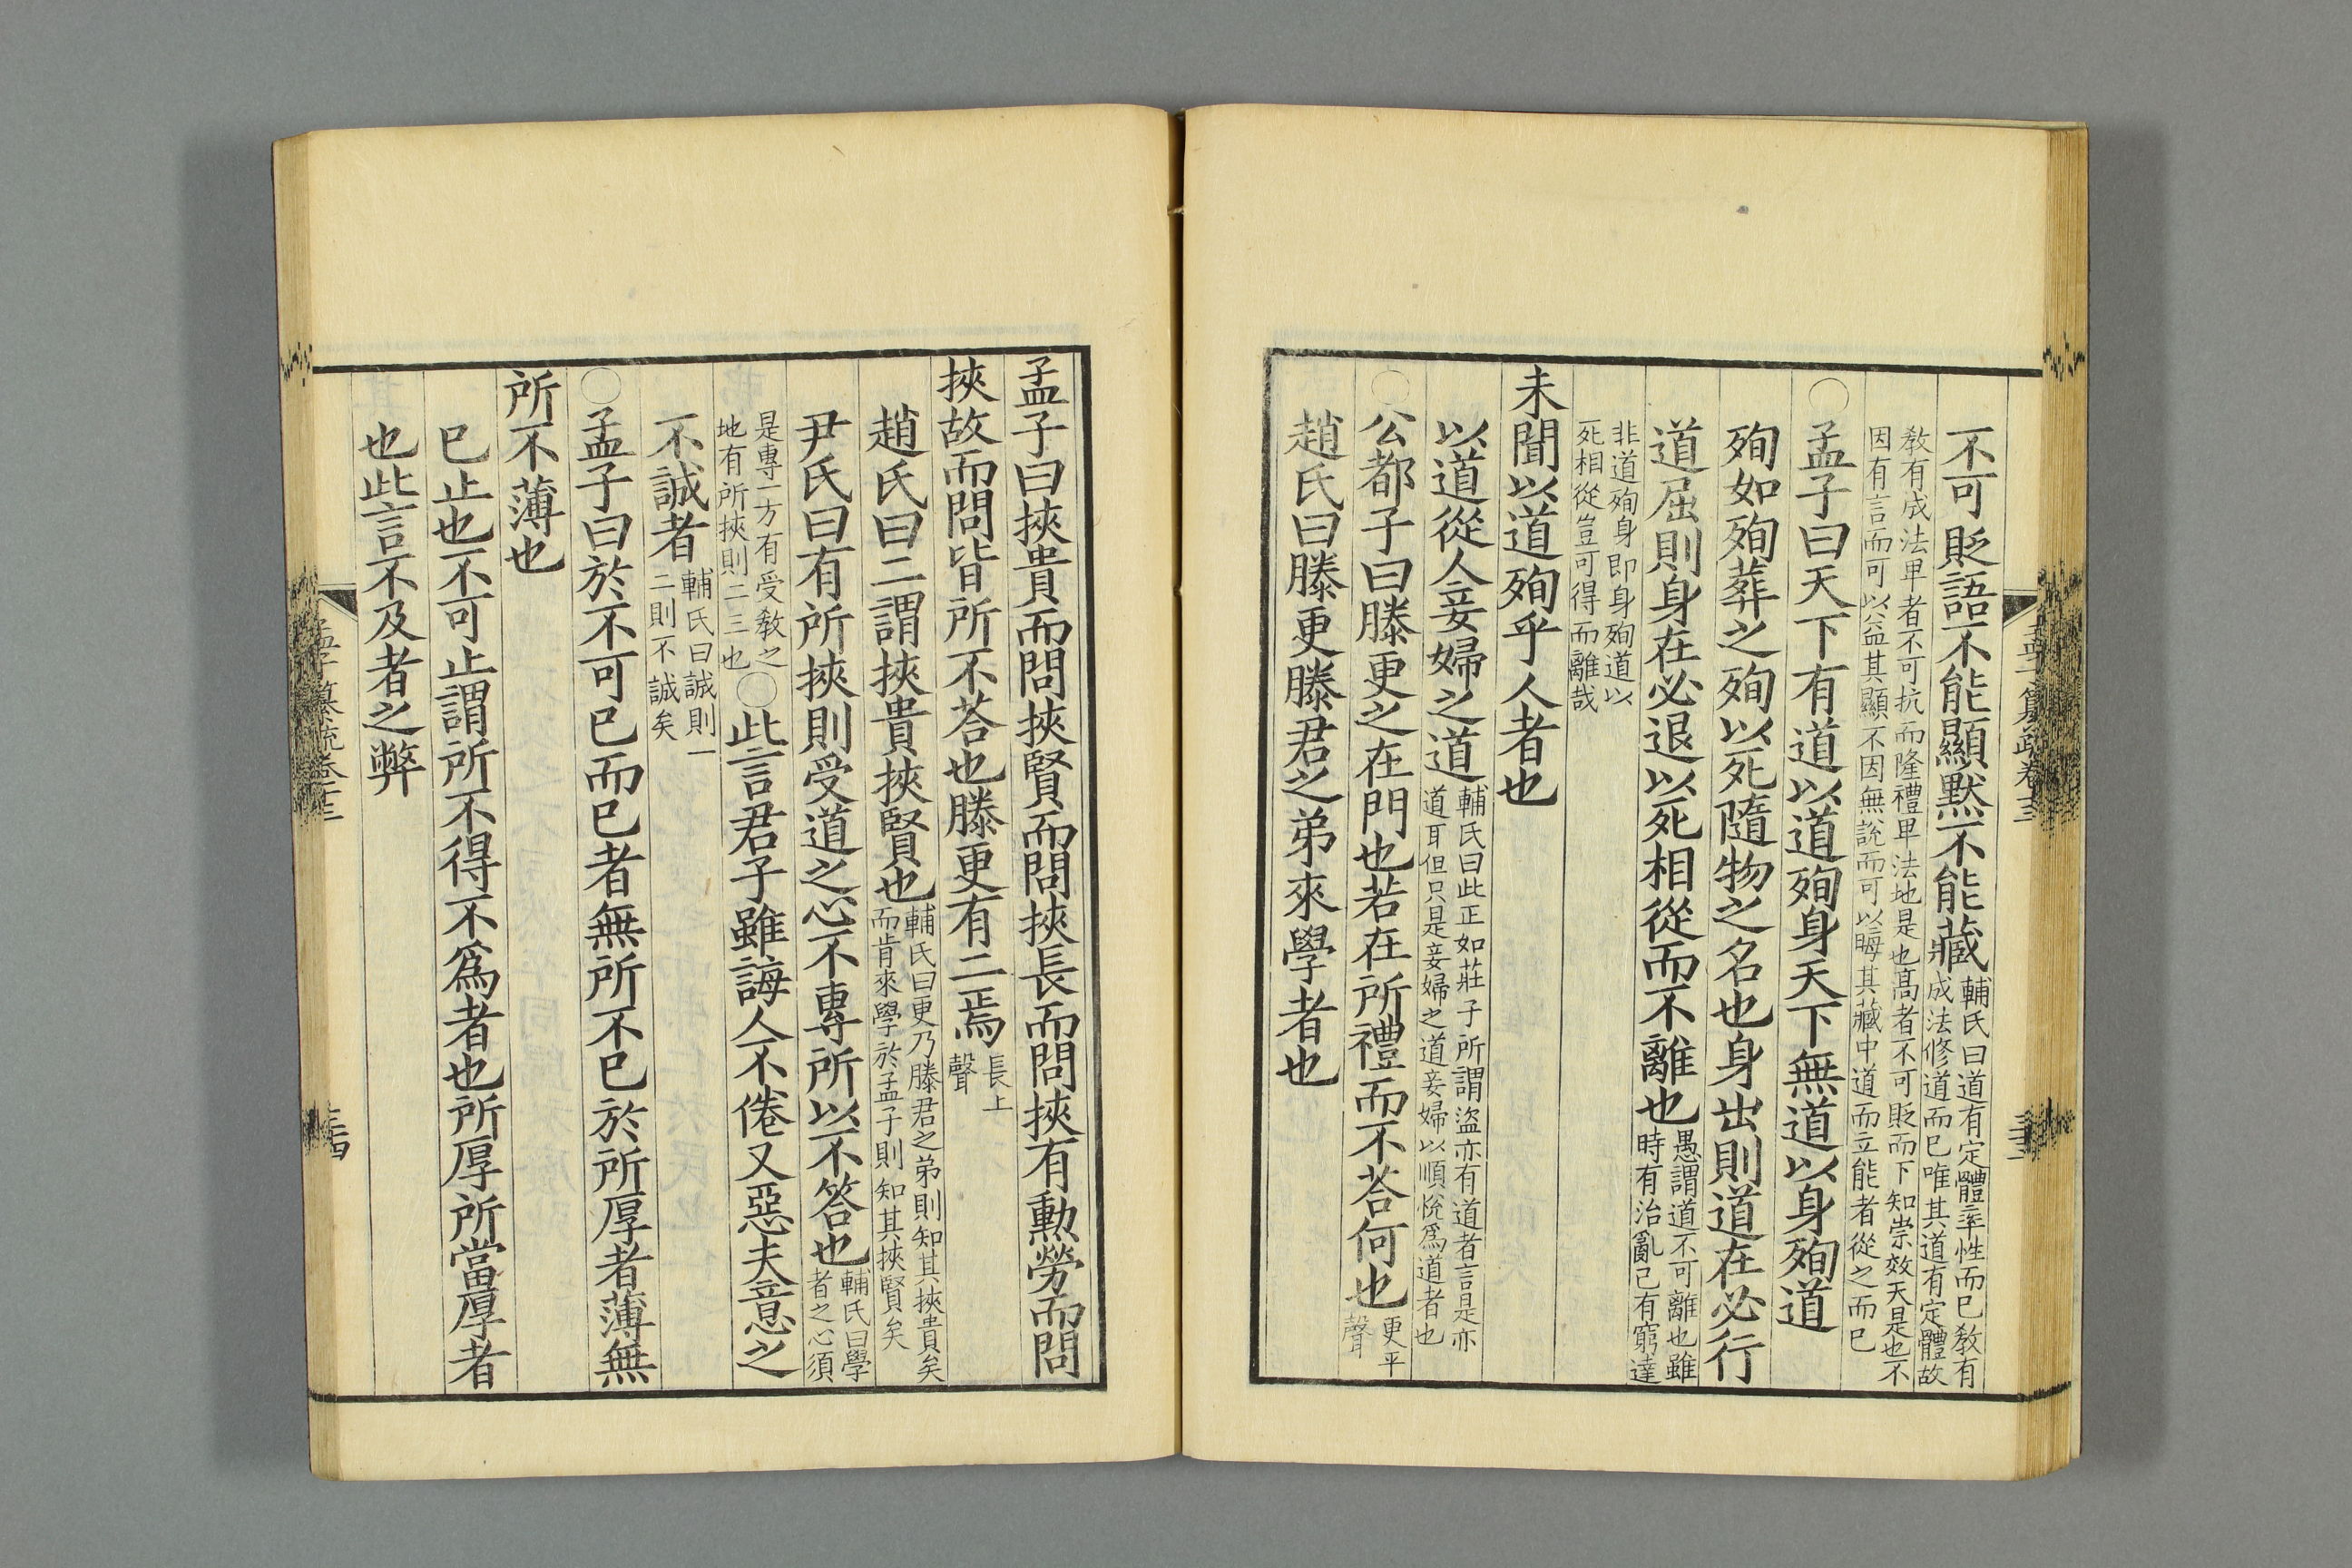 不可貶語不能顯黙不能藏輔氏曰道有定體率性而已敎有成法修道而已唯其道有定體故
敎有成法卑者不可抗而隆禮卑法地是也髙者不可貶而下知崇效天是也不因有言而可以益其顯不因無説而可以晦其藏中道而立能者從之而已
○孟子曰天下有道以道殉身天下無道以身殉道
殉如殉葬之殉以死隨物之名也身出則道在必行
道屈則身在必退以死相從而不離也愚謂道不可離也雖時有治亂己有窮達
非道殉身即身殉道以死相從豈可得而離哉
未聞以道殉乎人者也
以道從人妾婦之道輔氏曰此正如莊子所謂盜亦有道者言是亦道耳但只是妾婦之道妾婦以順悅爲道者也
○公都子曰滕更之在門也若在所禮而不荅何也更平聲
趙氏曰滕更滕君之弟來學者也
孟子曰挾貴而問挾賢而問挾長而問挾有勳勞而問
挾故而問皆所不荅也滕更有二焉長上聲
趙氏曰二謂挾貴挾賢也輔氏曰更乃滕君之弟則知其挾貴矣而肯來學於孟子則知其挾賢矣
尹氏曰有所挾則受道之心不專所以不答也輔氏曰學者之心須
是專一方有受敎之地有所挾則二三也○此言君子雖誨人不倦又惡夫意之
不誠者輔氏曰誠則一二則不誠矣
○孟子曰於不可已而已者無所不已於所厚者薄無
所不薄也
已止也不可止謂所不得不爲者也所厚所當厚者
也此言不及者之弊
孟子纂疏卷十三
三十四